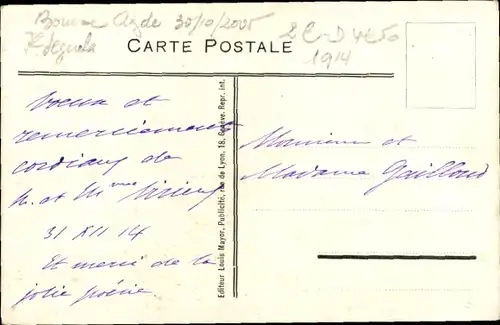 Bourse Agde 30/10/2005
2 C-D
1914
CARTE POSTALE
Voeux et
remerciements
cordiaux de
M. et Mme
31 XII 14
Et merci de la
jolie poésie.
Editeur Louis Mayor, Publicité, rue de Lyon, 18, Genève. Repr. int.
Monsieur et
Madame Gailloud